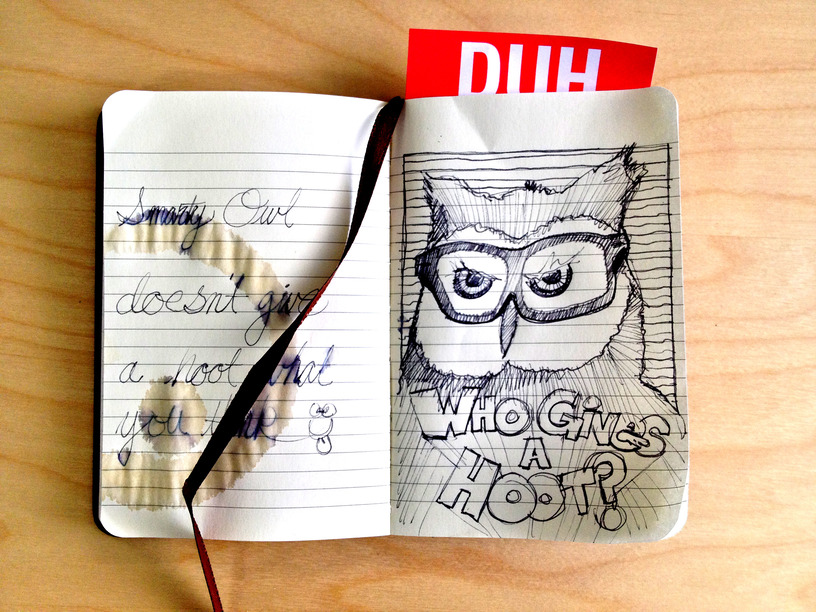 DUH
Smarty Owl
doesn't give
a hoot what
you think
WHO GiVES
A
HOOT?